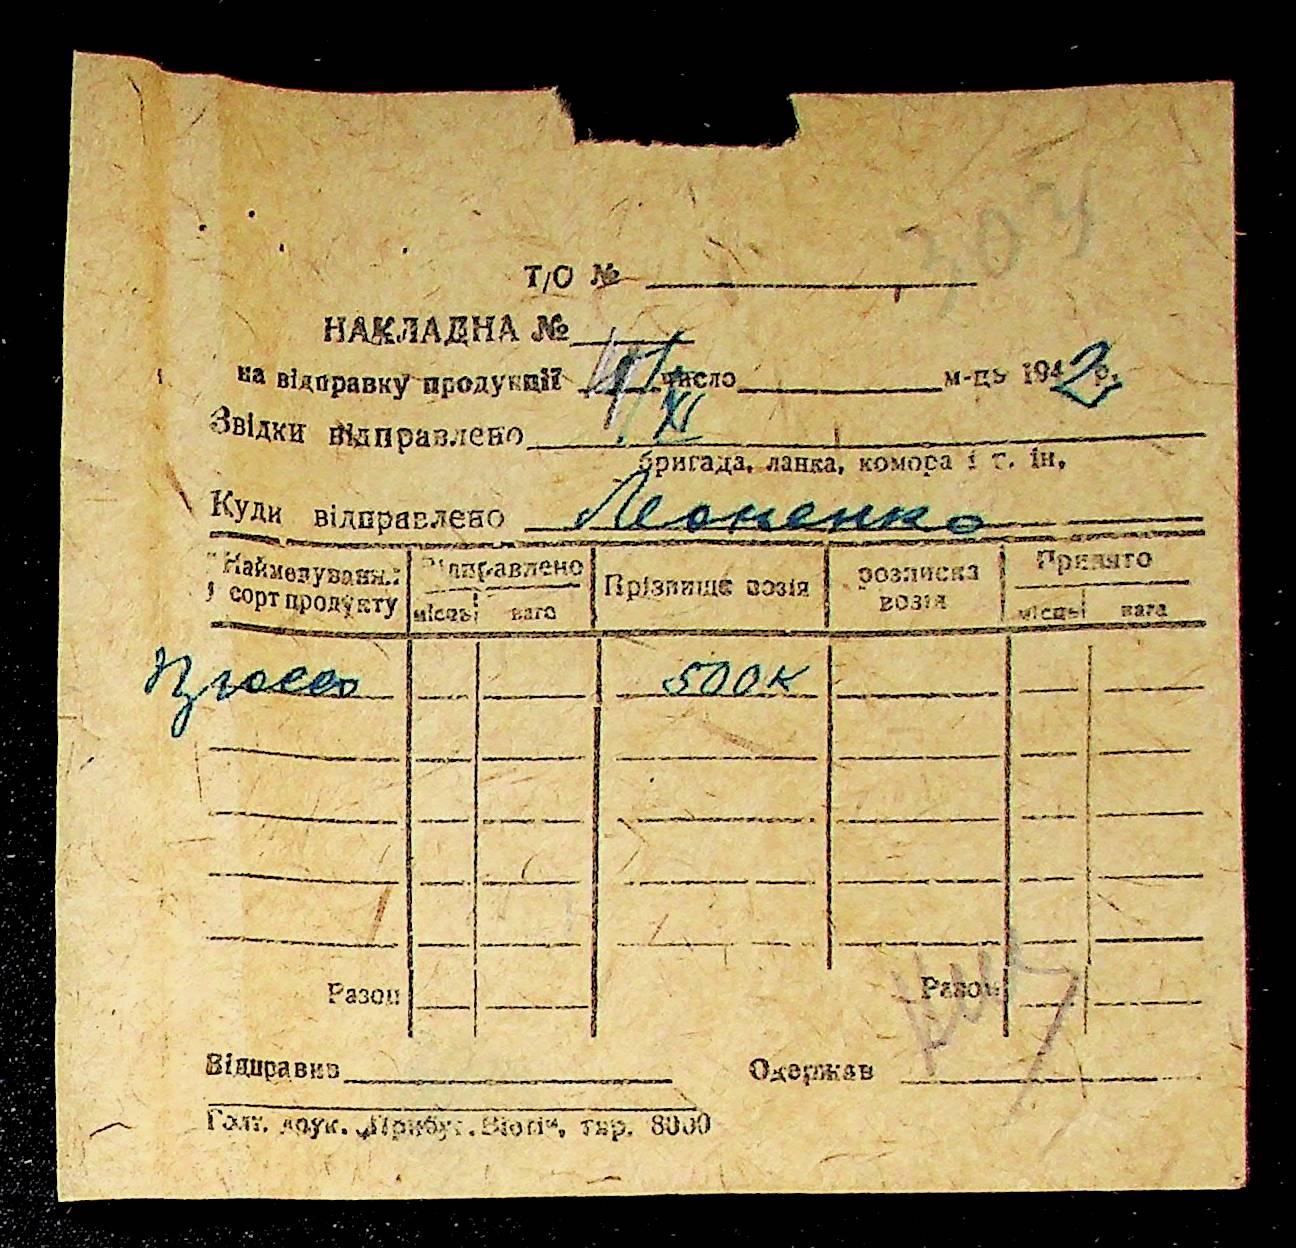 304
Т/О №
НАКЛАДНА №
на відправку продукції число м-ць 1942 р.
XI
Звідки відправлено
бригада, ланка, комора і т. ін.
Куди відправлено
Найменування і сорт продукту Відправлено місць вага Прізвище возія розписка возія Прийнято місць вага
500 к
Разом Разом
Відправив Одержав
Голт. друк. „Прибуг. Вісті“, тир. 8000